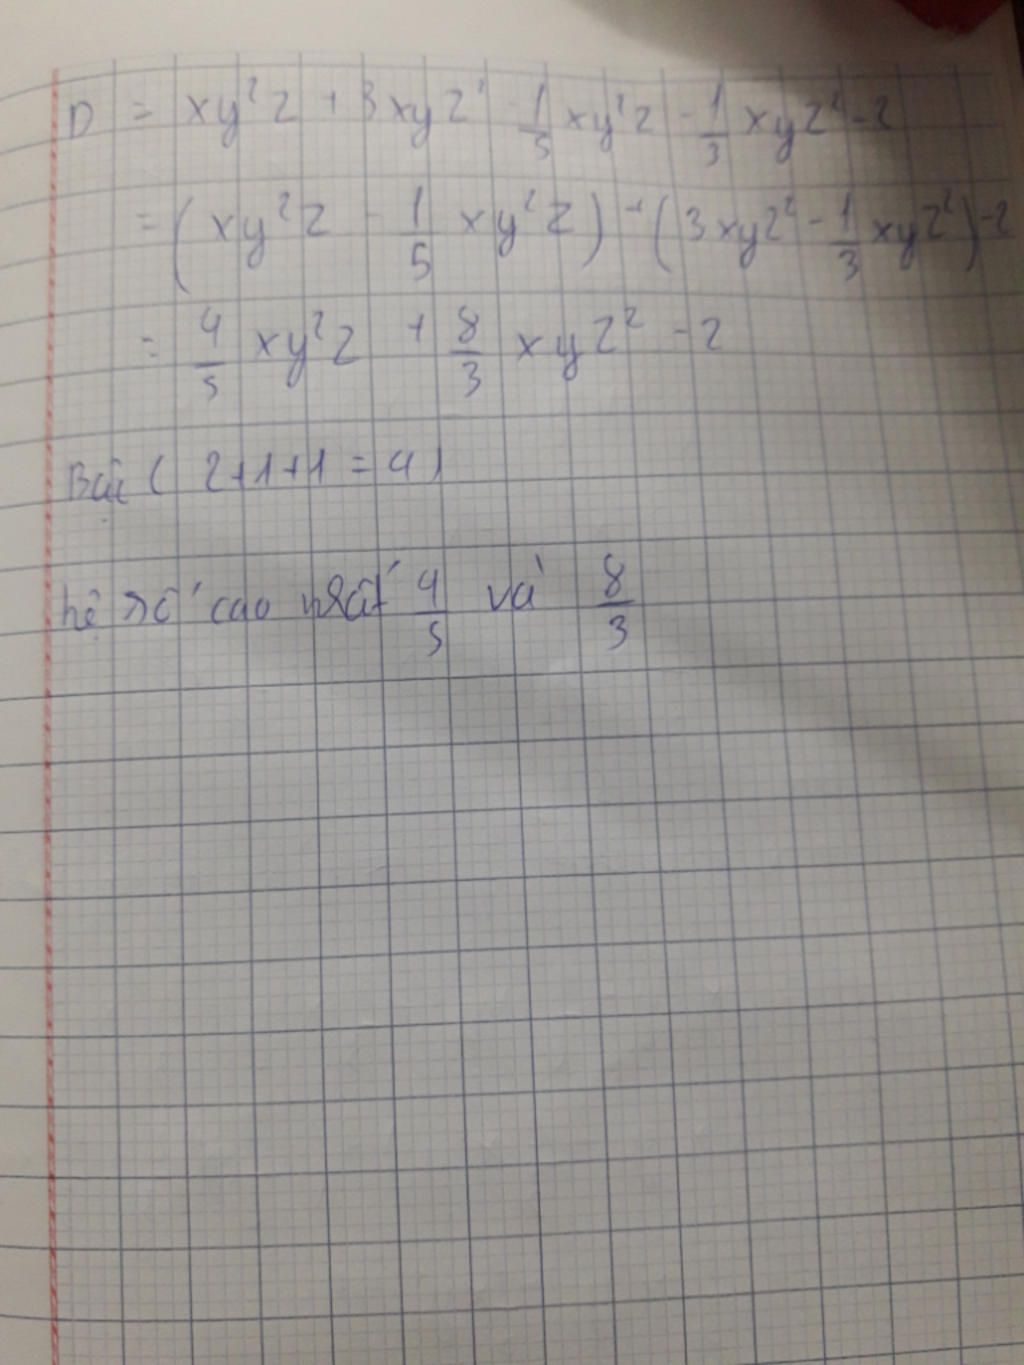 D = xy²z + 3xyz² - 1/5 xy²z - 1/3 xyz² - 2
= (xy²z - 1/5 xy²z) + (3xyz² - 1/3 xyz²) - 2
= 4/5 xy²z + 8/3 xyz² - 2
Bậc (2+1+1=4)
hệ số cao nhất 4/5 và 8/3